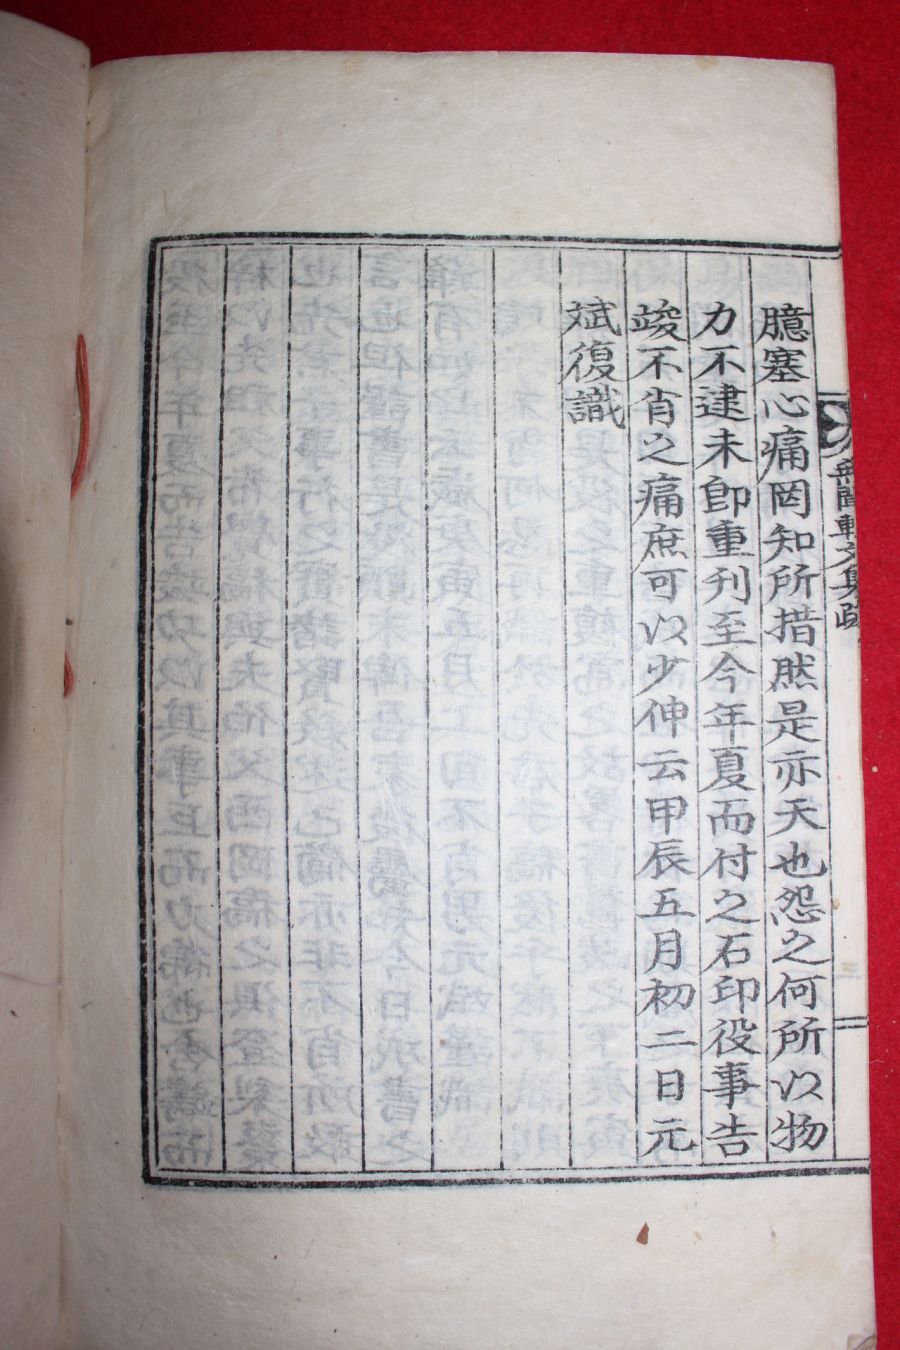 臆塞心痛罔知所措然是亦天也怨之何所以物
力不逮未卽重刊至今年夏而付之石印役事告
竣不肖之痛庶可以少伸云甲辰五月初二日元
斌復識
聞軒文集
三